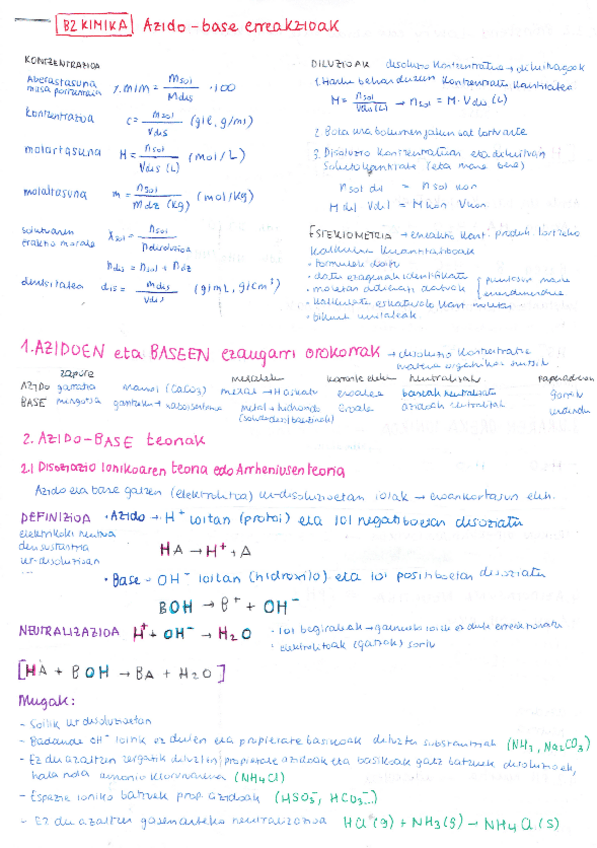 B2 KIMIKA Azido-base erreakzioak
KONTZENTRAZIOA
Aberastasuna % m/m = m sol / m dis · 100
masa portzentaia
kontzentrazioa c = m sol / V dis (g/L, g/ml)
molartasuna M = n sol / V dis (L) (mol/L)
molaltasuna m = n sol / m diz (kg) (mol/kg)
solutuaren frakzio molarra X sol = n sol / n disoluzioa
n dis = n sol + n diz
densitatea d dis = m dis / V dis (g/mL, g/cm³)
DILUZIOAK disoluzio kontzentratua → diluituagoak
1. Hartu behar duzun kontzentratu kantitatea
M = n sol / V dis (L) → n sol = M · V dis (L)
2. Bota ura bolumen jakin bat lortu arte
3. Disoluzio kontzentratuan eta diluituan
solutu kantitatea (eta masa bera)
n sol dil = n sol kon
M dil V dil = M kon · V kon
ESTEKIOMETRIA → erreaktibo kant. produk. lortzeko
kalkulu kuantitatiboak
• formulak doitu
• datu ezagunak identifikatu
• moletan adierazi datuak
• kalkulatu eskatutako kant moletan
• bihurtu unitateak
1. AZIDOEN eta BASEEN ezaugarri orokorrak → disoluzio kontzentratu
zapore metalekin neutralizazioa
AZIDO garratza marmol (CaCO3) metal → H2 askatu eroalea baseak neutralizatu gorritu
BASE mingotsa metal + hidroxido eroale azidoak neutralizatu urdindu
2. AZIDO-BASE teoriak
2.1 Disoziazio Ionikoaren teoria edo Arrheniusen teoria
Azido eta base gatzen (elektrolitoa) ur-disoluzioetan ioiak → eroankortasun elek.
DEFINIZIOA • Azido → H⁺ ioitan (protoi) eta ioi negatiboetan disoziatu
elektrikoki neutroa
den sustantzia
ur-disoluzioan
HA → H⁺ + A
• Base - OH⁻ ioitan (hidroxilo) eta ioi positiboetan disoziatu
BOH → B⁺ + OH⁻
NEUTRALIZAZIOA H⁺ + OH⁻ → H2O
• ioi begiraleak → gainerako ioiak ez dute erreakzionatu
• elektrolitoak (gatzak) sortu
[HA + BOH → BA + H2O]
Mugak:
- Soilik ur disoluzioetan
- Badaude OH⁻ ioirik ez duten eta propietate basikoak dituzten substantziak (NH3, Na2CO3)
- Ez du azaltzen zergatik dituzten propietate azidoak eta basikoak gatz batzuek disoluzioek,
hala nola amonio kloruroarena (NH4Cl)
- Espezie ioniko batzuek prop. azidoak (HSO3⁻, HCO3⁻...)
- Ez du azaltzen gasen arteko neutralizazioa HCl (g) + NH3 (g) → NH4Cl (s)